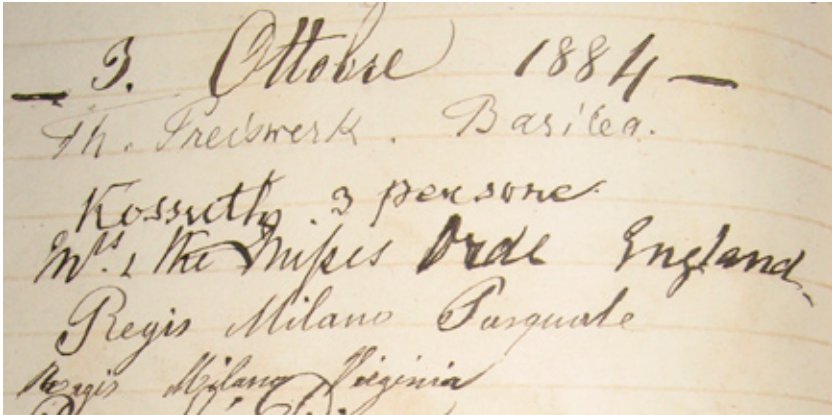 — 3. Ottobre 1884 —
Th. Preiswerk. Basilea.
Kossuth 3 persone.
Mrs. & the Misses Orde England.
Regis Milano Pasquale
Regis Milano Virginia